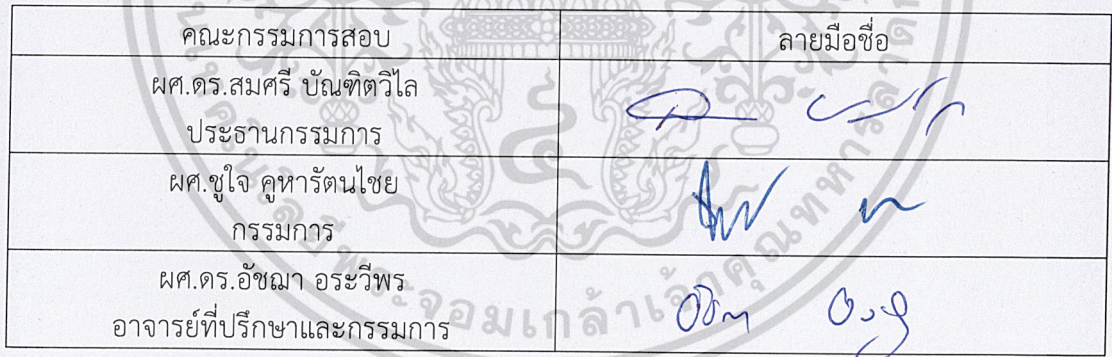 คณะกรรมการสอบ ลายมือชื่อ
ผศ.ดร.สมศรี บัณฑิตวิไล
ประธานกรรมการ
ผศ.ชูใจ คูหารัตนไชย
กรรมการ
ผศ.ดร.อัชฌา อระวีพร
อาจารย์ที่ปรึกษาและกรรมการ